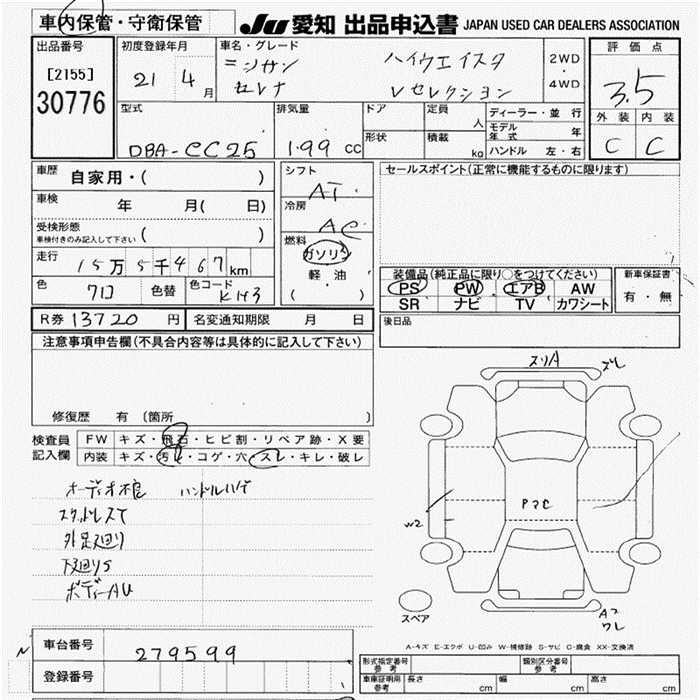 車内保管・守衛保管
JU 愛知 出品申込書 JAPAN USED CAR DEALERS ASSOCIATION
出品番号
[2155]
30776
初度登録年月
21年 4月
車名・グレード
ニッサン ハイウエイスタ
セレナ Vセレクション
2WD
・
4WD
評価点
3.5
外装 内装
C C
型式
DBA-CC25
排気量
1.99 CC
ドア
形状
定員 人
積載 kg
ディーラー・並行
モデル年式 年
ハンドル 左・右
車歴 自家用・( )
車検 年 月( 日)
受検形態
車検付きのみ記入して下さい ( )
走行 15万5千467km
色 クロ 色替 色コード KH3
シフト
AT
冷房
AC
燃料
ガソリン
軽油
( )
セールスポイント(正常に機能するものに限ります)
装備品(純正品に限り○をつけてください)
PS PW エアB AW
SR ナビ TV カワシート
新車保証書
有・無
R券 13720 円 名変通知期限 月 日
後日品
注意事項申告欄(不具合内容等は具体的に記入して下さい)
修復歴 有 〔箇所 〕
検査員記入欄
FW キズ・飛石・ヒビ割・リペア跡・X要
内装 キズ・汚レ・コゲ・穴・スレ・キレ・破レ
オーディオ ハンドルハゲ
スタットレスT
外足廻り
下廻りS
ボディーAU
スリA
ズレ
W2
PマC
スペア
Aコ
ワレ
A-キズ E-エクボ U-凹み W-補修跡 S-サビ C-腐食 XX-交換済
車台番号 279599
登録番号
N
形式指定番号 参考
類別区分番号 参考
車庫証明用 参考 長さ cm 幅 cm 高さ cm